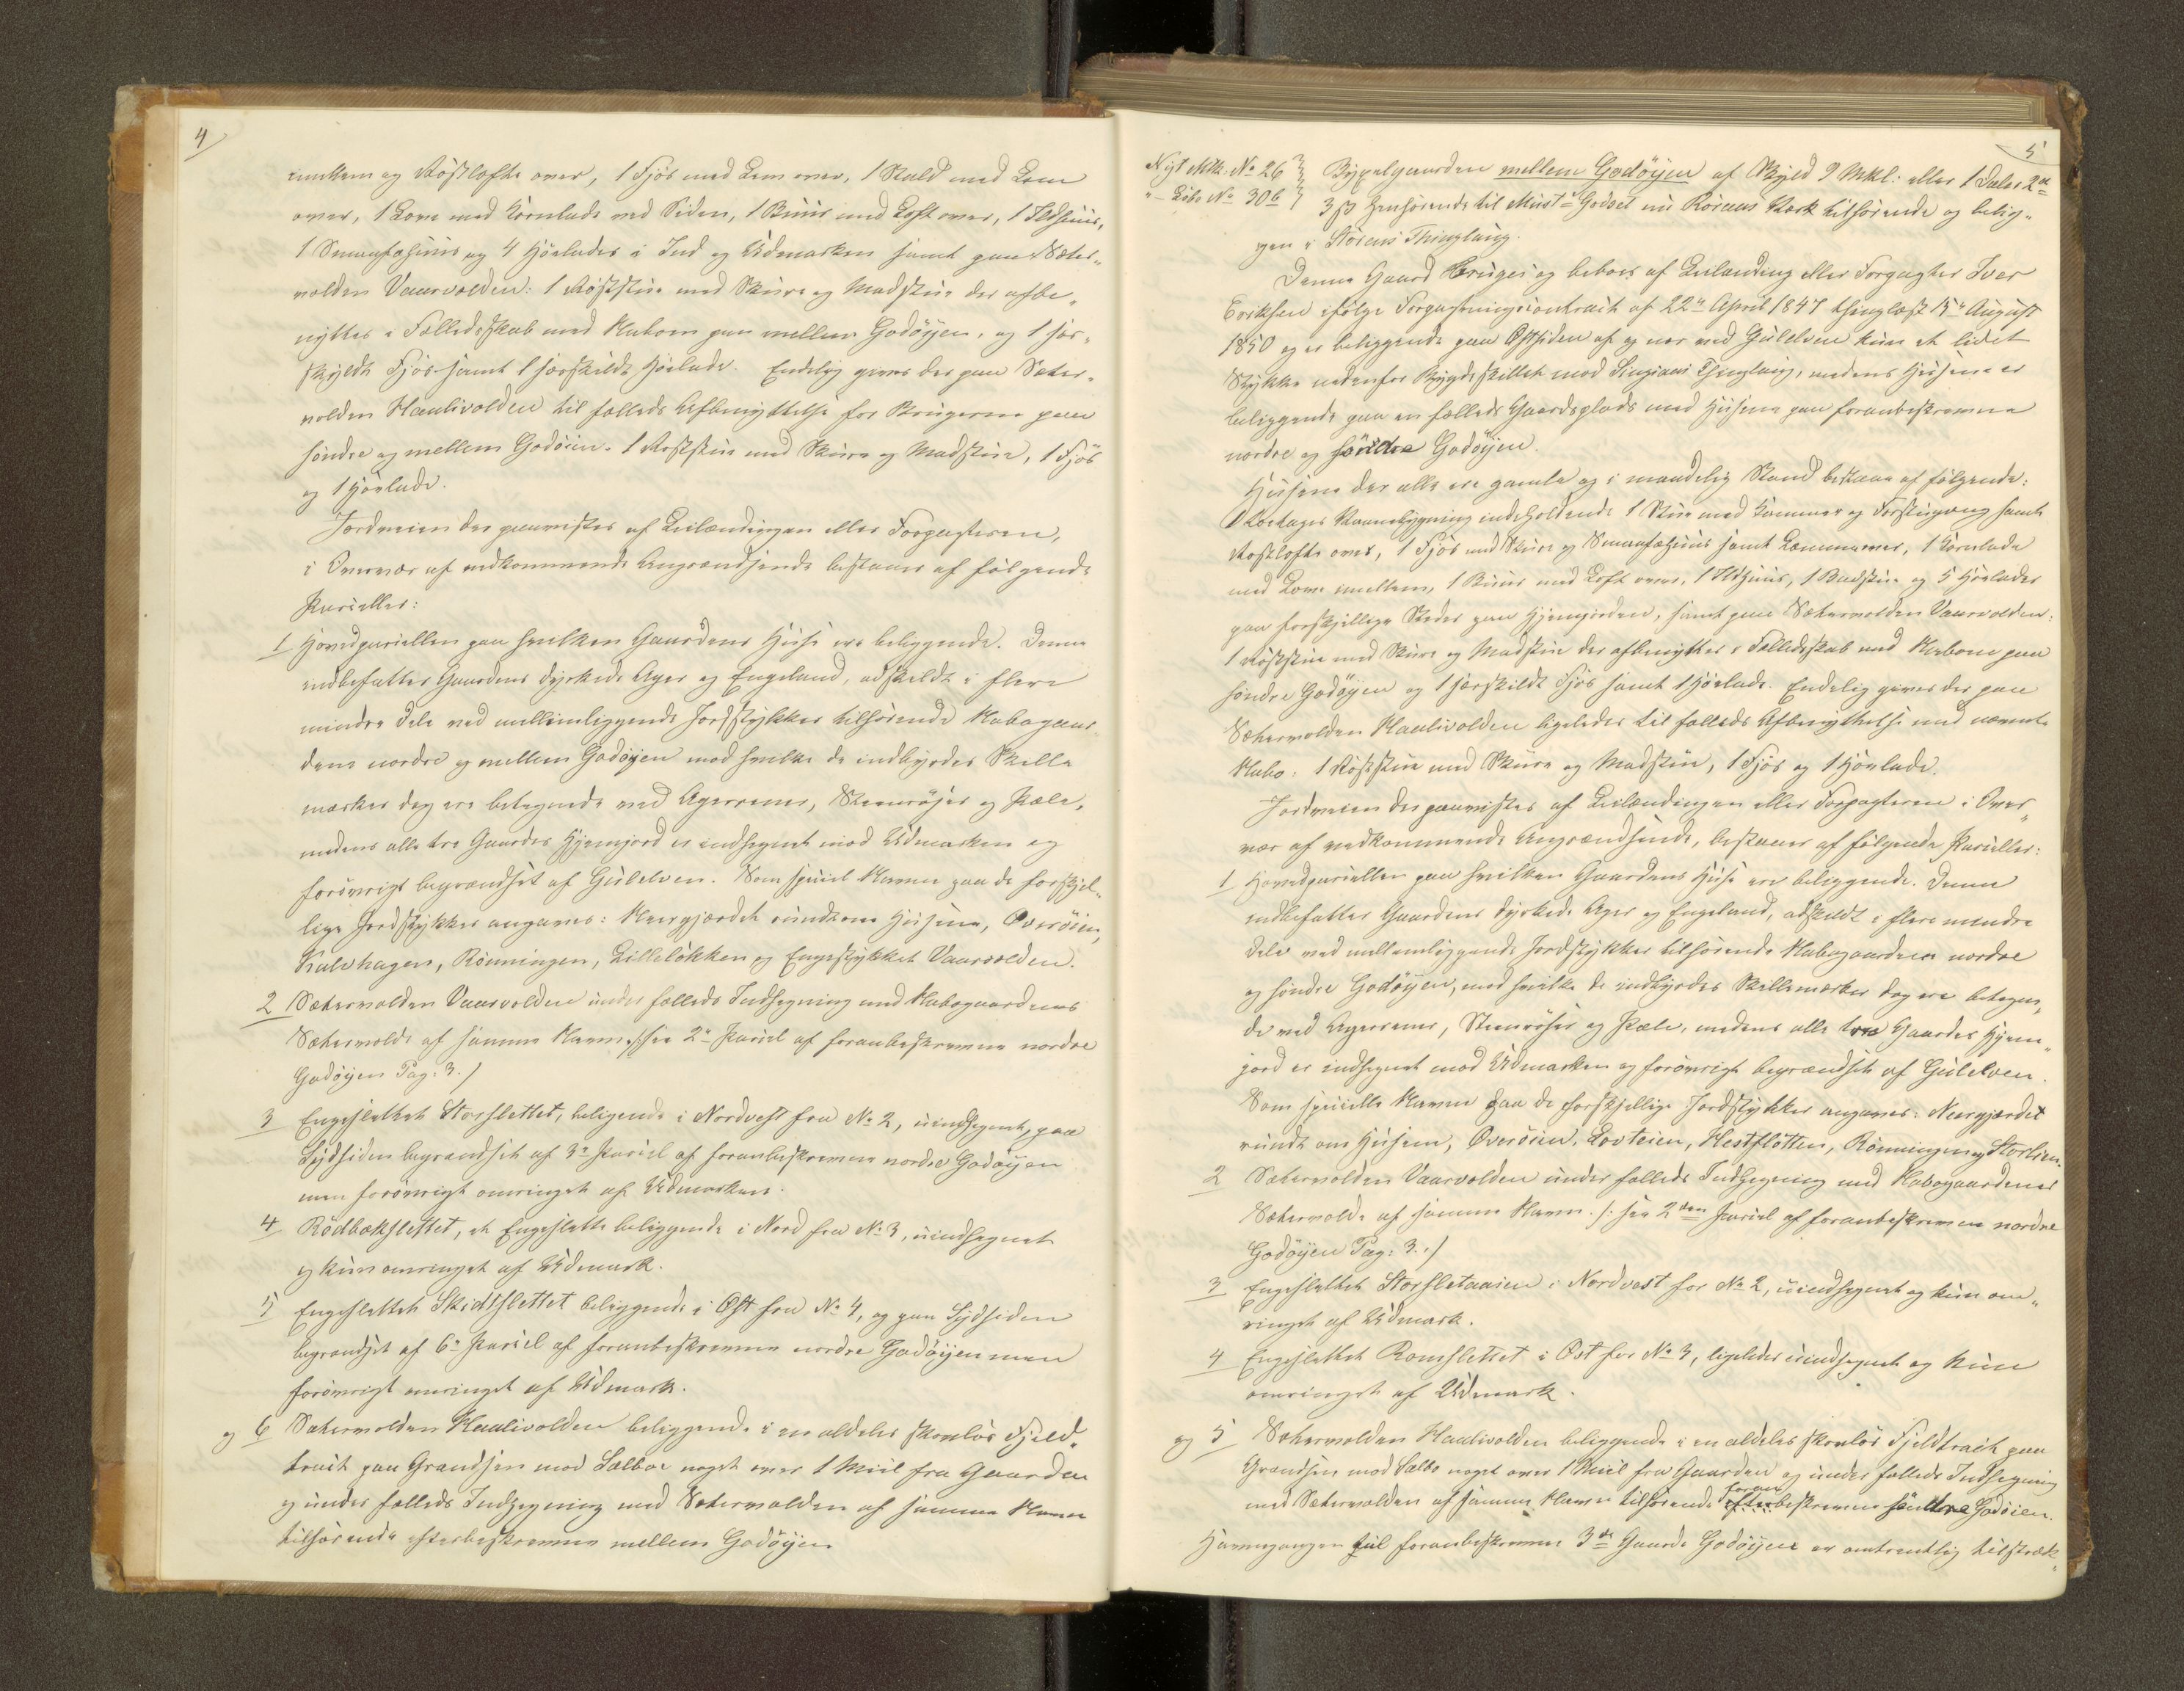 4
imellem og Røstlofte over, 1 Fjøs med Lem over, 1 Stald med Lem
over, 1 Love med Kornlade ved Siden, 1 Buur med Loft over, 1 Ildhuus,
1 Smaafæhuus og 4 Høelader i Ind og Udmarken samt paa Sæter„
volden Vaarvolden: 1 Røststue med Skure og Madstue der afbe„
nyttes i Fælledsskab med Naboen paa mellem Godöyen, og 1 sær„
skildt Fjøs samt 1 særskildt Høelade. Endelig gives der paa Sæter„
volden Haalivolden til fælleds Afbenyttelse for Brugerne paa
søndre og mellem Godöien. 1 Røststue med Skure og Madstue, 1 Fjøs
og 1 Høelade.
Jordveien der paavistes af Leilændingen eller Forpagteren,
i Overvær af vedkommende Angrændsende bestaaer af følgende
Parceller:
1 Hovedparcellen paa hvilken Gaardens Huse ere beliggende. Denne
indbefatter Gaardens dyrkede Ager og Engeland, adskildt i flere
mindre Dele ved mellemliggende Jordstykker tilhørende Nabogaar
dene nordre og mellem Godöyen mod hvilke de indbyrdes Skille
mærker dog ere betegnede med Agerrener, Steenrøser og Pæle,
medens alle tre Gaardes Hjemjord er indhegnet mod Udmarken og
forøvrigt begrændset af Gulelven. Som speciel Navne paa de forskjel„
lige Jordstykker angaves: Neergjærdet rundtom Husene, Overöien,
Kalvhagen, Rönningen, Lillelökken og Engestykket Vaarvolden.
2 Sætervolden Vaarvolden under fælleds Indhegning med Nabogaardenes
Sætervolde af samme Navn ./: see 2n Parcel af foranbeskrevne nordre
Godöyen Pag: 3. /
3 Engeslettet Storslettet, beligende i Nordvest fra No 2, uindhegnet, paa
Sydsiden begrændset af 3e Parcel af foranbeskrevne nordre Godöyen
men forøvrigt omringet af Udmarken.
4 Rödbækslettet, et Engeslette beliggende i Nord fra No 3, uindhegnet
og kun omringet af Udmark.
5 Engeslettet Skidtslettet beliggende i Öst fra No 4, og paa Sydsiden
begrændset af 6e Parcel af foranbeskrevne nordre Godöyen men
forøvrigt omringet af Udmark.
og 6 Sætervolden Haalivolden beliggende i en aldeles skovløs Fjeld„
tract paa Grændsen mod Sælboe noget over 1 Miil fra Gaarden
og under fælleds Indhegning med Sætervolden af samme Navn
tilhørende efterbeskrevne mellem Godöyen
5
Nyt Mtk: No 26 } Bygselgaarden mellem Godöyen af Skyld 9 Mkl: eller 1 Daler 2 #
"– Løbe No 306 } 3 ß henhørende til Must-Godset nu Röraas Værk tilhørende og belig„
gen i Störens Thinglaug.
Denne Gaard bruges og beboes af Leilænding eller Forpagter Iver
Eriksen ifølge Forpagtningscontract af 22de April 1847 thinglæst 15de August
1850 og er beliggende paa Östsiden af og nær ved Gulelven kun et lidet
Stykke nedenfor Bygdeskillet mod Singsaas Thinglaug, medens Husene er
beliggende paa en fælleds Gaardsplads med Husene paa foranbeskrevne
nordre og søndre Godöyen.
Husene der alle ere gamle og i maadelig Stand bestaae af følgende:
1 Toetages Vaanebygning indeholdende 1 Stue med Kammer og Forstugang samt
Røstlofte over, 1 Fjøs med Skure og Smaafæhuus samt Lemme over, 1 Kornlade
med Love imellem, 1 Buur med Loft over, 1 Ildhuus, 1 Badstue og 5 Høelader
paa forskjellige Steder paa Hjemjorden, samt paa Sætervolden Vaarvolden:
1 Røststue med Skure og Madstue der afbenyttes i Fælledsskab med Naboen paa
søndre Godöyen og 1 særskildt Fjøs samt 1 Høelade. Endelig gives der paa
Sætervolden Haalivolden ligeledes til fælleds Afbenyttelse med nævnte
Nabo: 1 Røststue med Skure og Madstue, 1 Fjøs og 1 Høelade.
Jordveien der paavistes af Leilændingen eller Forpagteren i Over„
vær af vedkommende Angrændsende, bestaaer af følgende Parceller:
1 Hovedparcellen paa hvilken Gaardens Huse ere beliggende. Denne
indbefatter Gaardens dyrkede Ager og Engeland, adskildt i flere mindre
Dele ved mellemliggende Jordstykker tilhørende Nabogaardene nordre
og søndre Godöyen, mod hvilke de indbyrdes Skillemærker dog ere betegne„
de ved Agerrener, Steenrøser og Pæle, medens alle tre Gaardes Hjem„
jord er indhegnet mod Udmarken og forøvrigt begrændset af Gulelven.
Som specielle Navne paa de forskjellige Jordstykker angaves: Neergjærdet
rundt om Husene, Overöien, Lovteien, Hestflötten, Rönningen og Storlien.
2 Sætervolden Vaarvolden under fælleds Indhegning med Nabogaardenes
Sætervolde af samme Navn. /: see 2den Parcel af foranbeskrevne nordre
Godöyen Pag: 3. /
3 Engeslettet Storsletaasen i Nordvest for No 2, uindhegnet og kun om„
ringet af Udmark.
4 Engeslettet Romslettet i Öst for No 3, ligeledes uindhegnet og kun
omringet af Udmark.
og 5 Sætervolden Haalivolden beliggende i en aldeles skovløs Fjeldtract paa
Grændsen mod Sælbo noget over 1 Miil fra Gaarden og under fælleds Indhegning
med Sætervolden af samme Navn tilhørende foranbeskrevne søndre Godöien.
Havnegangen til foranbeskrevne 3de Gaarde Godöyen er omtrentlig tilstræk„